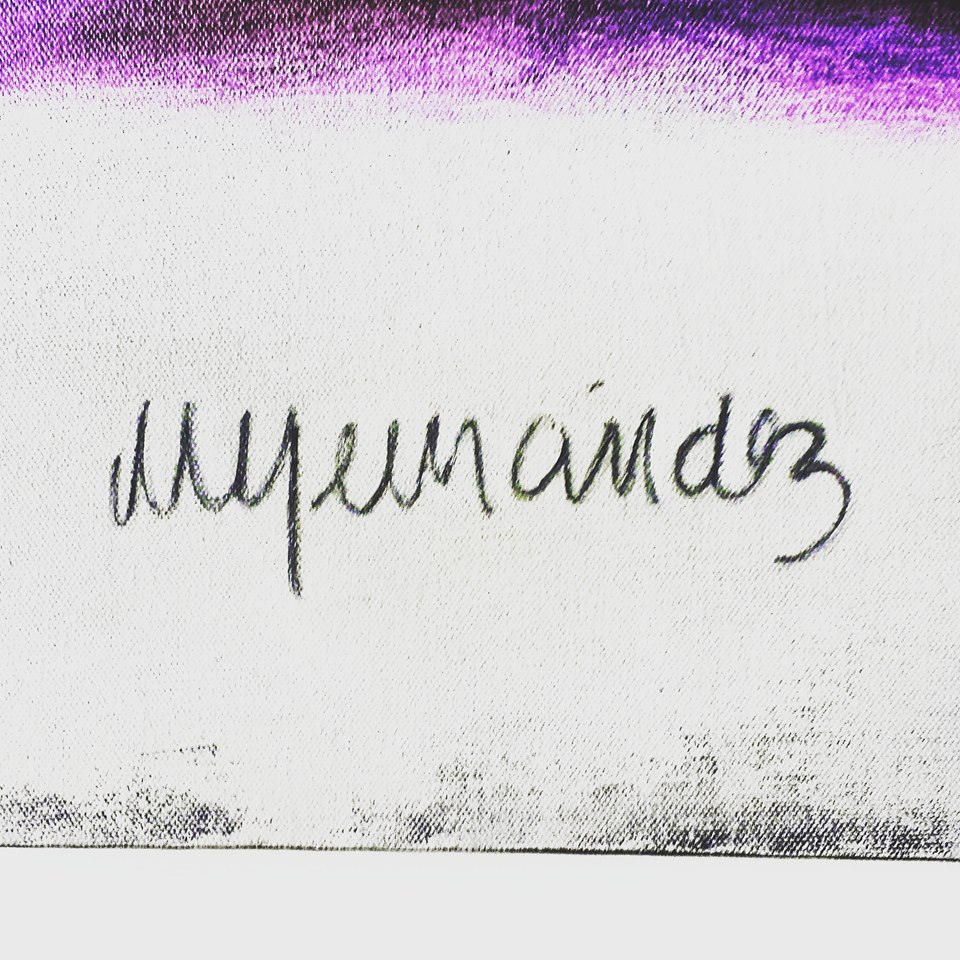 Myernández